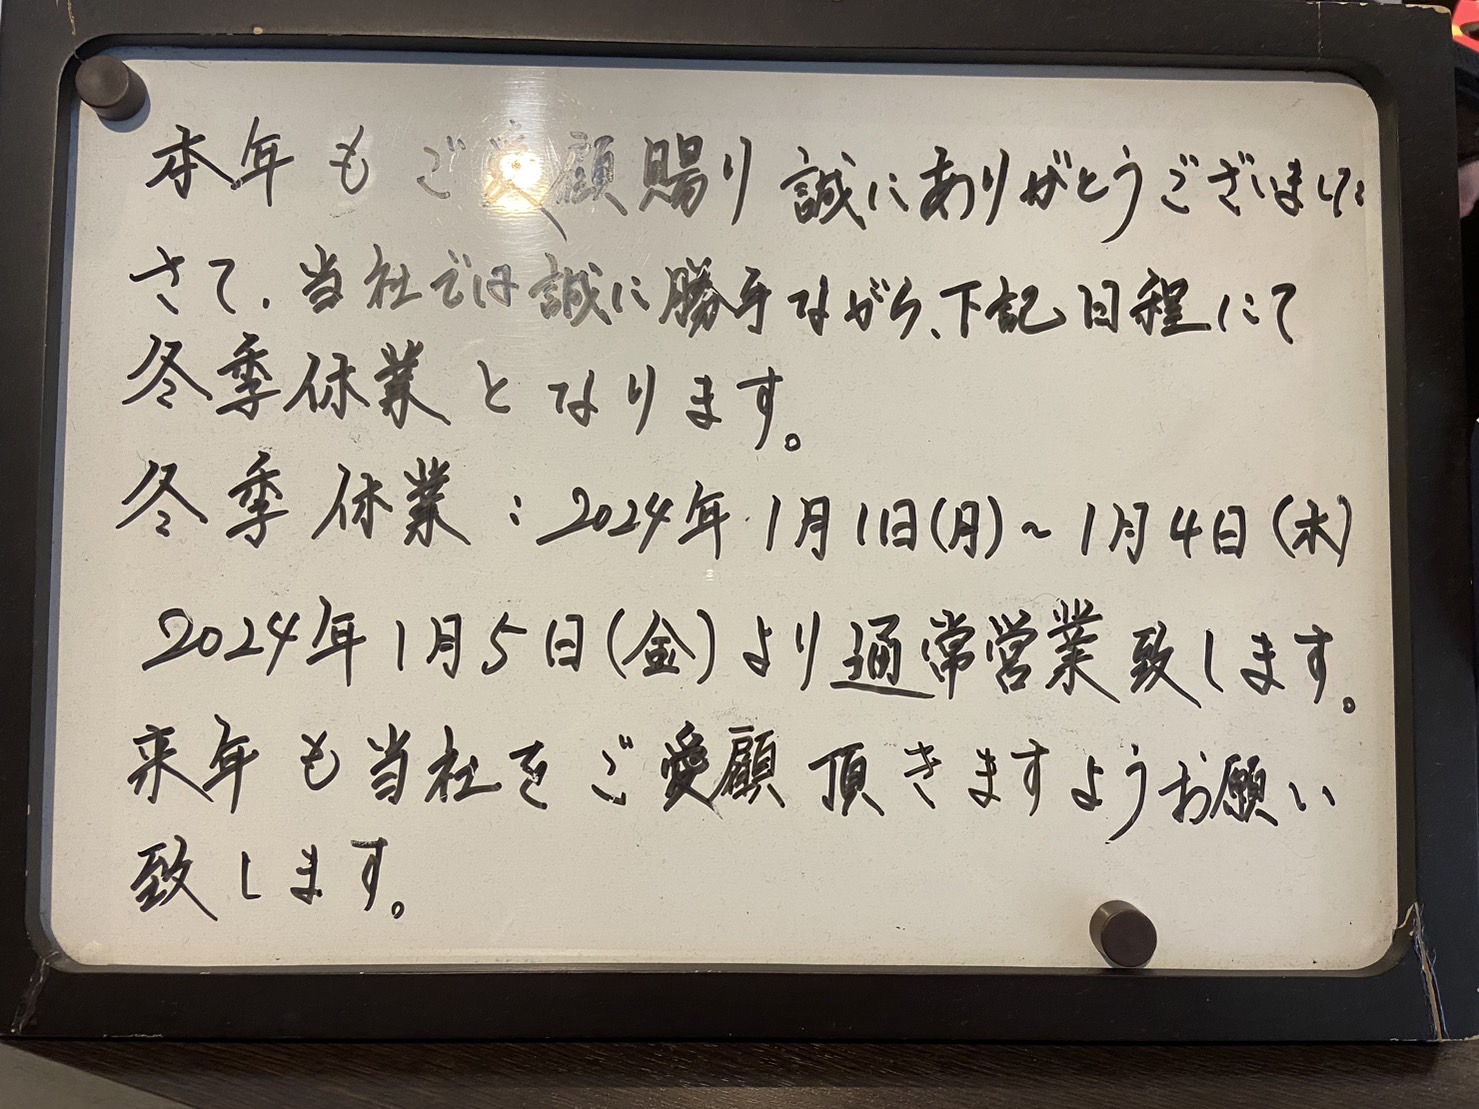 本年もご愛顧賜り誠にありがとうございました
さて、当社では誠に勝手ながら、下記日程にて
冬季休業となります。
冬季休業:2024年1月1日(月)~1月4日(木)
2024年1月5日(金)より通常営業致します。
来年も当社をご愛顧頂きますようお願い
致します。